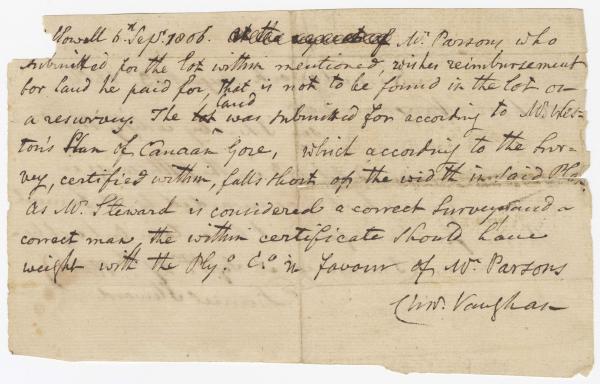 Hallowell 6th Sepr. 1806. At the request of Mr. Parsons, who
submitted for the lot within mentioned, wishes reimbursement
for land he paid for, that is not to be found in the lot on
a resurvey. The lot land was submitted for according to Mr. Wes-
ton's Plan of Canaan Gore, which according to the Sur-
vey, certified within, falls short of the width in said Plan.
As Mr. Steward is considered a correct Surveyor and a
correct man, the within certificate should have
weight with the Plyo. Co. in favour of Mr. Parsons
Chas. Vaughan